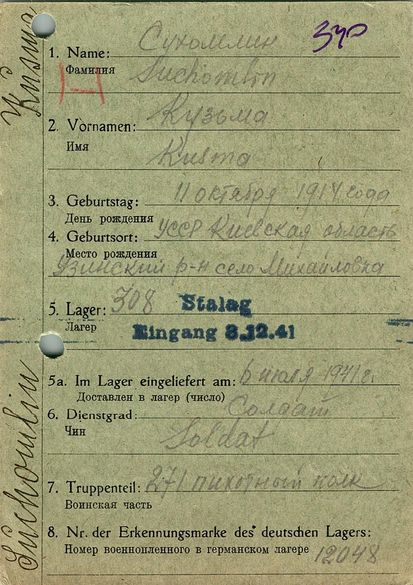 Kusma
Suchomlin
Зур
Сухомлин
1. Name:
Фамилия
Suchomlin
Кузьма
2. Vornamen:
Имя
Kusma
11 октября 1914 года
3. Geburtstag:
День рождения
4. Geburtsort: УССР Киевская область
Место рождения
Узинский р-н село Михайловка
5. Lager: 308
Лагер
Stalag
Eingang 8.12.41
5a. Im Lager eingeliefert am: 6 июля 1941 г.
Доставлен в лагер (число)
6. Dienstgrad: Солдат
Чин
Soldat
7. Truppenteil: 271 пихотный полк
Воинская часть
8. Nr. der Erkennungsmarke des deutschen Lagers:
Номер военнопленного в германском лагере 12048